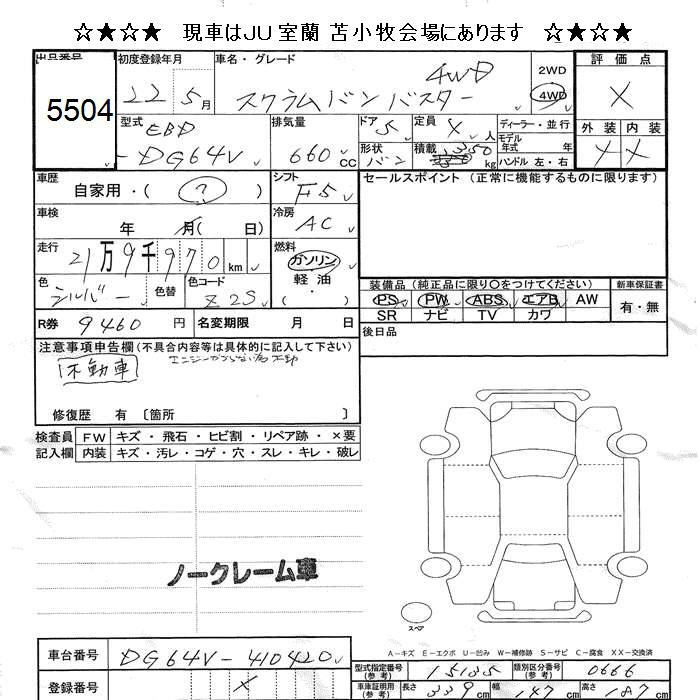 ☆★☆★ 現車はJU室蘭 苫小牧会場にあります ☆★☆★
出品番号 初度登録年月 車名・グレード 評価点
5504 22年 5月 スクラムバン バスター 4WD 2WD 4WD X
外装 内装
X X
型式 EBD-DG64V 排気量 660cc ドア 5 定員 4人 ディーラー・並行
形状 バン 積載 350kg モデル年式 年 ハンドル 左・右
車歴 自家用・( ? ) シフト F5 セールスポイント (正常に機能するものに限ります)
車検 年 月( 日) 冷房 AC
走行 21万9千970km 燃料 ガソリン 軽油 ・( )
色 シルバー 色替 色コード Z2S
装備品 (純正品に限り○をつけてください) 新車保証書
PS PW ABS エアB AW 有・無
SR ナビ TV カワ
R券 9460円 名変期限 月 日 後日品
注意事項申告欄(不具合内容等は具体的に記入して下さい)
不動車 エンジンかからない為不動
修復歴 有〔箇所 〕
検査員 FW キズ・飛石・ヒビ割・リペア跡・×要
記入欄 内装 キズ・汚レ・コゲ・穴・スレ・キレ・破レ
ノークレーム車
スペア
A-キズ E-エクボ U-凹み W-補修跡 S-サビ C-腐食 XX-交換済
車台番号 DG64V-410420
登録番号 X
型式指定番号(参考) 15135 類別区分番号(参考) 0666
車庫証明用(参考) 長さ 339cm 幅 147cm 高さ 187cm